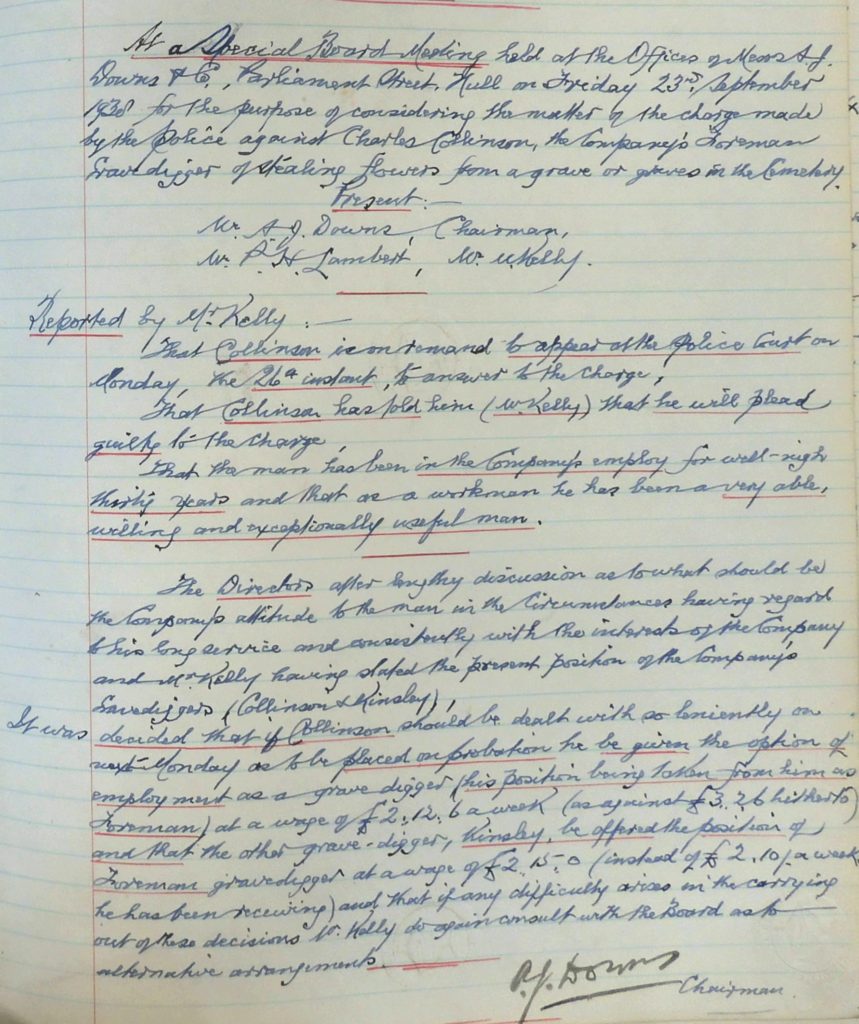 At a Special Board Meeting held at the Offices of Messrs A.J.
Downs & Co., Parliament Street, Hull on Friday 23rd September
1938 for the purpose of considering the matter of the charge made
by the Police against Charles Collinson, the Company's Foreman
Gravedigger of stealing flowers from a grave or graves in the Cemetery.
Present:-
Mr. A.J. Downs, Chairman,
Mr. P.H. Lambert, Mr. Kelly.
Reported by Mr Kelly :-
That Collinson is on remand to appear at the Police Court on
Monday, the 26th instant, to answer to the charge,
That Collinson has told him (Mr. Kelly) that he will plead
guilty to the charge,
That the man has been in the Company's employ for well-nigh
thirty years and that as a workman he has been a very able,
willing and exceptionally useful man.
The Directors after lengthy discussion as to what should be
the Company's attitude to the man in the circumstances having regard
to his long service and consistently with the interests of the Company
and Mr Kelly having stated the present position of the Company's
Gravediggers (Collinson & Kinsley),
It was decided that if Collinson should be dealt with so leniently on
next Monday as to be placed on probation he be given the option of
employment as a grave digger (his position being taken from him as
Foreman) at a wage of £2.12.6 a week (as against £3.2.6 hitherto)
and that the other grave-digger, Kinsley, be offered the position of
Foreman gravedigger at a wage of £2.15.0 (instead of £2.10/- a week
he has been receiving) and that if any difficulty arises in the carrying
out of these decisions Mr. Kelly do again consult with the Board as to
alternative arrangements.
A.J. Downs
Chairman